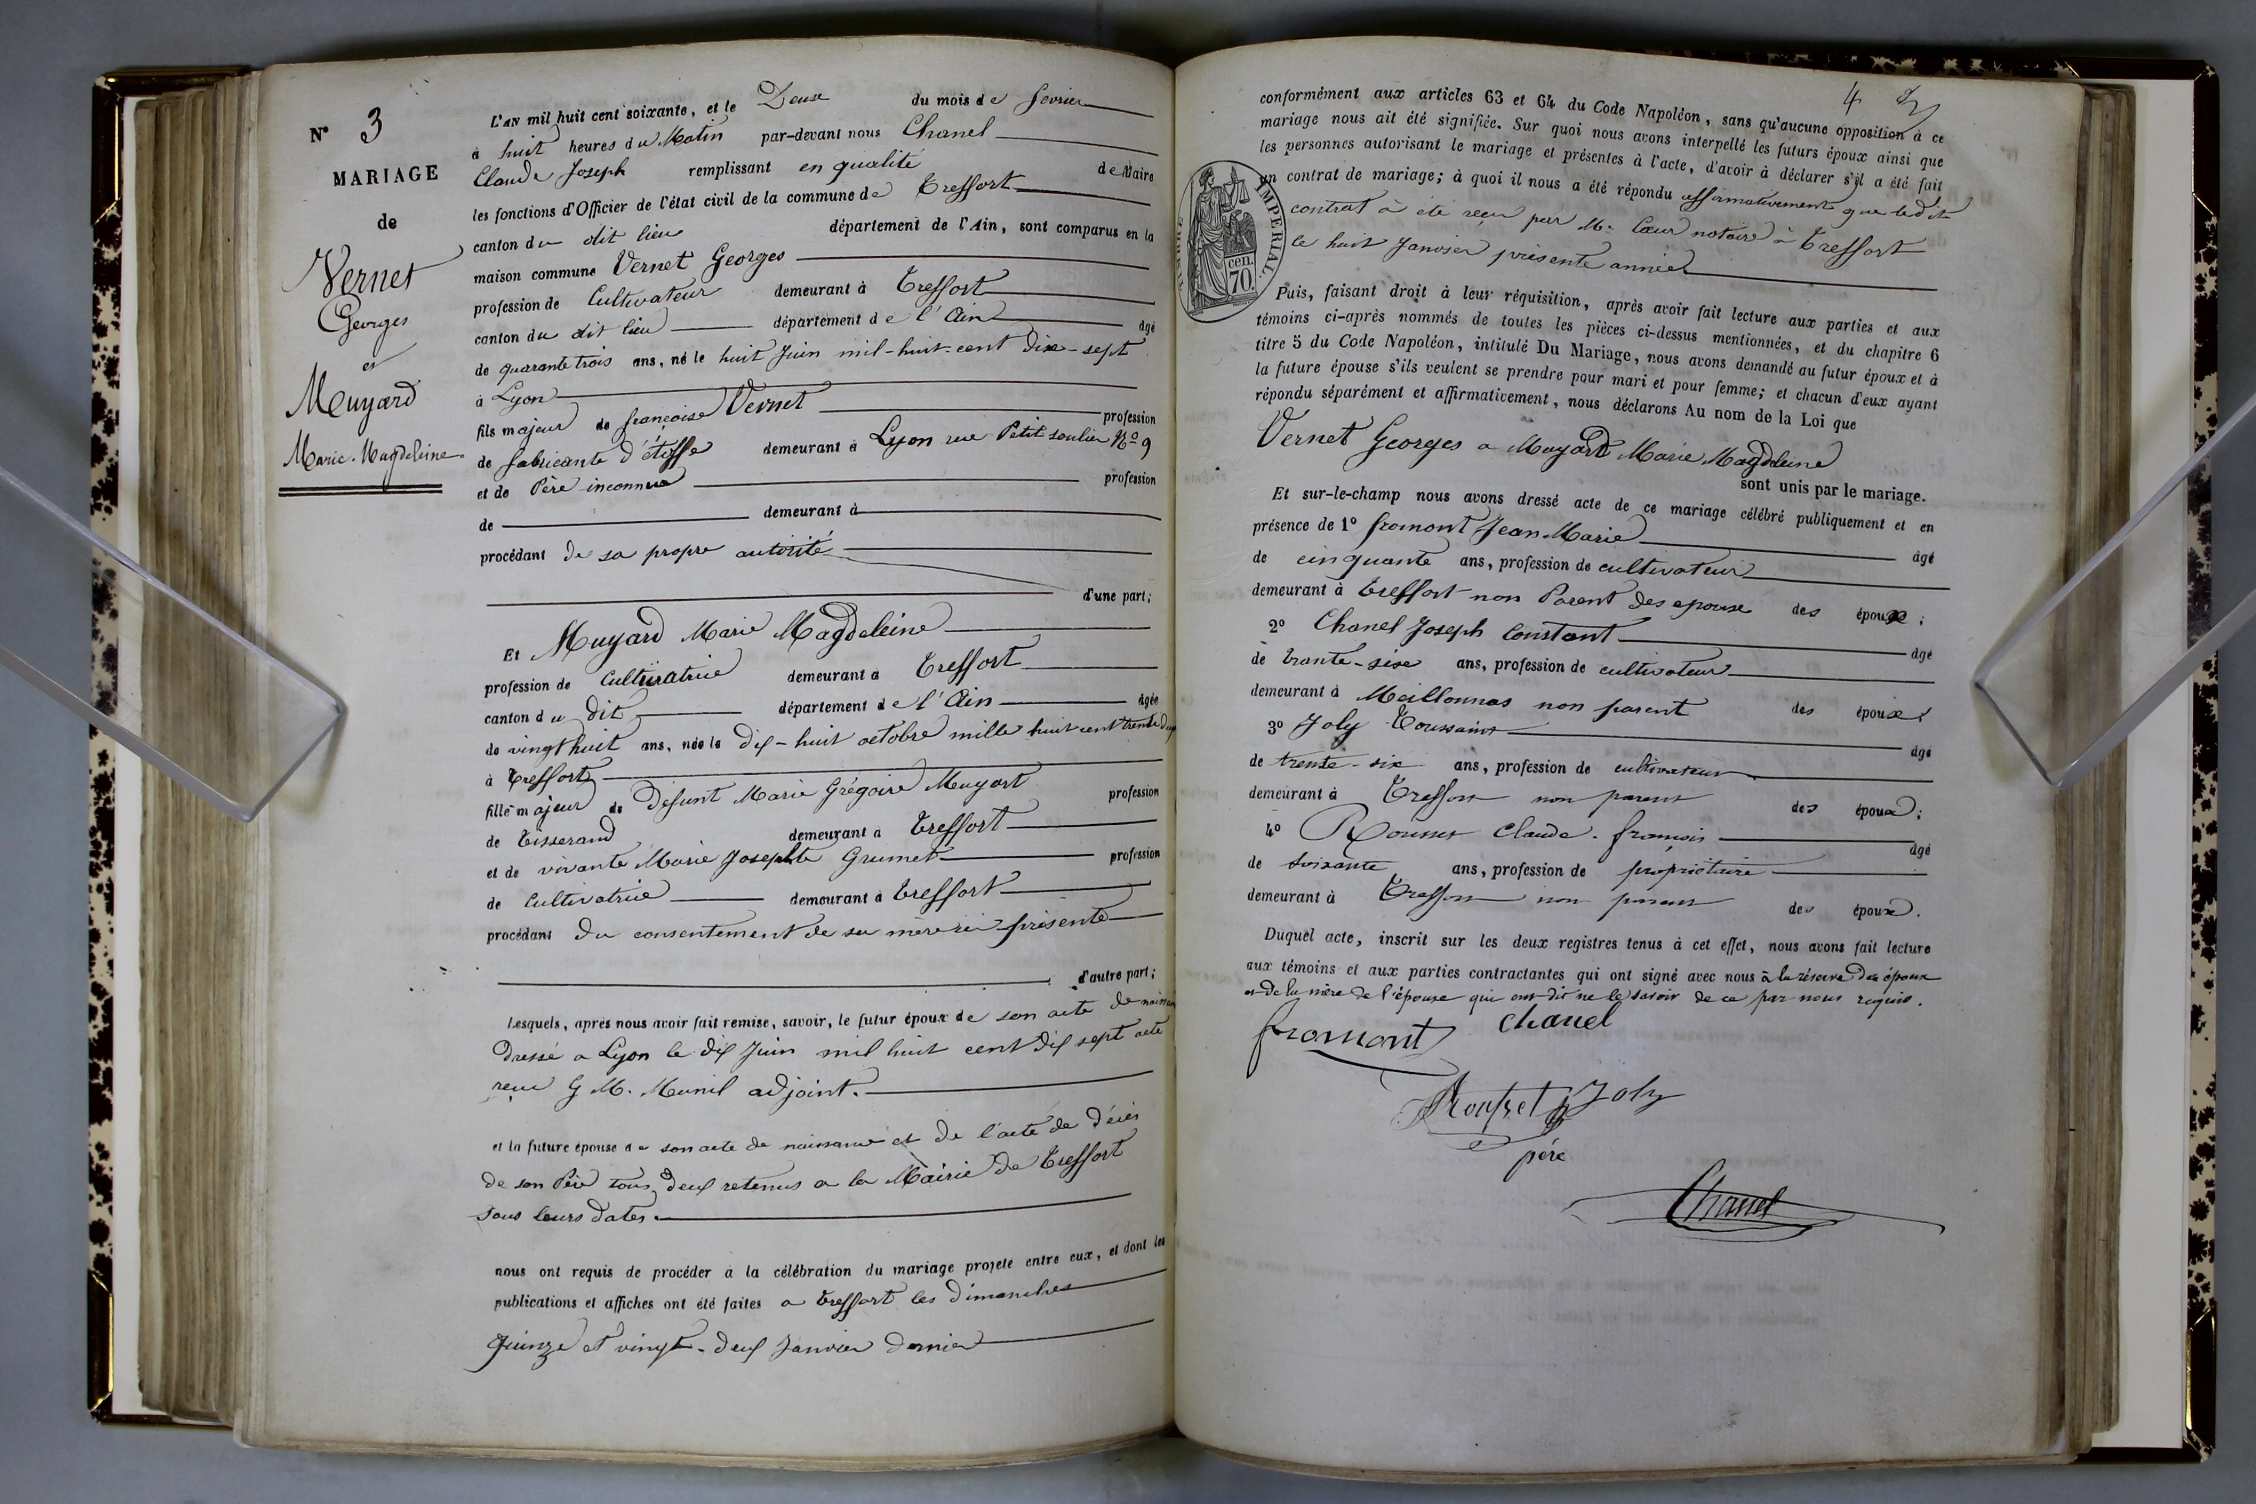 N° 3
MARIAGE
de
Vernet
Georges
et
Muyard
Marie-Magdeleine
L'AN mil huit cent soixante, et le Deux du mois de fevrier
à huit heures du Matin par-devant nous Chanel
Claude Joseph remplissant en qualité de Maire
les fonctions d'Officier de l'état civil de la commune de Treffort
canton du dit lieu département de l'Ain, sont comparus en la
maison commune Vernet Georges
profession de Cultivateur demeurant à Treffort
canton du dit lieu département de l'Ain âgé
de quarante trois ans, né le huit Juin mil-huit-cent dix-sept
à Lyon
fils majeur de françoise Vernet profession
de fabricante d'étoffe demeurant à Lyon rue Petit soulier N° 9
et de Père inconnu profession
de demeurant à
procédant de sa propre autorité
d'une part;
Et Muyard Marie Magdeleine
profession de Cultivatrice demeurant à Treffort
canton du dit département de l'Ain âgée
de vingt huit ans, née le dix-huit octobre mille huit cent trente deux
à Treffort
fille majeur de Defunt Marie Grégoire Muyart profession
de Tisserand demeurant à Treffort
et de vivante Marie Josephte Grumet profession
de Cultivatrice demeurant à Treffort
procédant du consentement de sa mère ici présente
d'autre part;
Lesquels, après nous avoir fait remise, savoir, le futur époux de son acte de naissan
dressé a Lyon le dix Juin mil huit cent dix sept acte
reçu G M. Munil adjoint.
et la future épouse de son acte de naissance et de l'acte de décès
de son Père tous deux retenus a la Mairie de Treffort
sous leurs dates.
nous ont requis de procéder à la célébration du mariage projeté entre eux, et dont les
publications et affiches ont été faites a Treffort les dimanches
quinze et vingt-deux Janvier dernier
4
conformément aux articles 63 et 64 du Code Napoléon, sans qu'aucune opposition à ce
mariage nous ait été signifiée. Sur quoi nous avons interpellé les futurs époux ainsi que
les personnes autorisant le mariage et présentes à l'acte, d'avoir à déclarer s'il a été fait
un contrat de mariage; à quoi il nous a été répondu affirmativement que ledit
contrat a été reçu par Me Cœur notaire à Treffort
le huit Janvier présente année
TIMBRE IMPERIAL.
70. cen.
Puis, faisant droit à leur réquisition, après avoir fait lecture aux parties et aux
témoins ci-après nommés de toutes les pièces ci-dessus mentionnées, et du chapitre 6
titre 5 du Code Napoléon, intitulé Du Mariage, nous avons demandé au futur époux et à
la future épouse s'ils veulent se prendre pour mari et pour femme; et chacun d'eux ayant
répondu séparément et affirmativement, nous déclarons Au nom de la Loi que
Vernet Georges a Muyard Marie Magdeleine
sont unis par le mariage.
Et sur-le-champ nous avons dressé acte de ce mariage célébré publiquement et en
présence de 1° fromont Jean Marie âgé
de cinquante ans, profession de cultivateur
demeurant à Treffort non Parent des epoux des époux;
2° Chanel Joseph Constant âgé
de trante-sise ans, profession de cultivateur
demeurant à Meillonnas non parent des époux;
3° Joly Toussaint âgé
de trente-six ans, profession de cultivateur
demeurant à Treffort non parent des époux;
4° Rousset Claude-françois âgé
de soixante ans, profession de propriétaire
demeurant à Treffort non parent des époux.
Duquel acte, inscrit sur les deux registres tenus à cet effet, nous avons fait lecture
aux témoins et aux parties contractantes qui ont signé avec nous à la réserve des époux
et de la mère de l'épouse qui ont dit ne le savoir de ce par nous requis.
fromont Chanel
Rousset Joly
père
Chanel